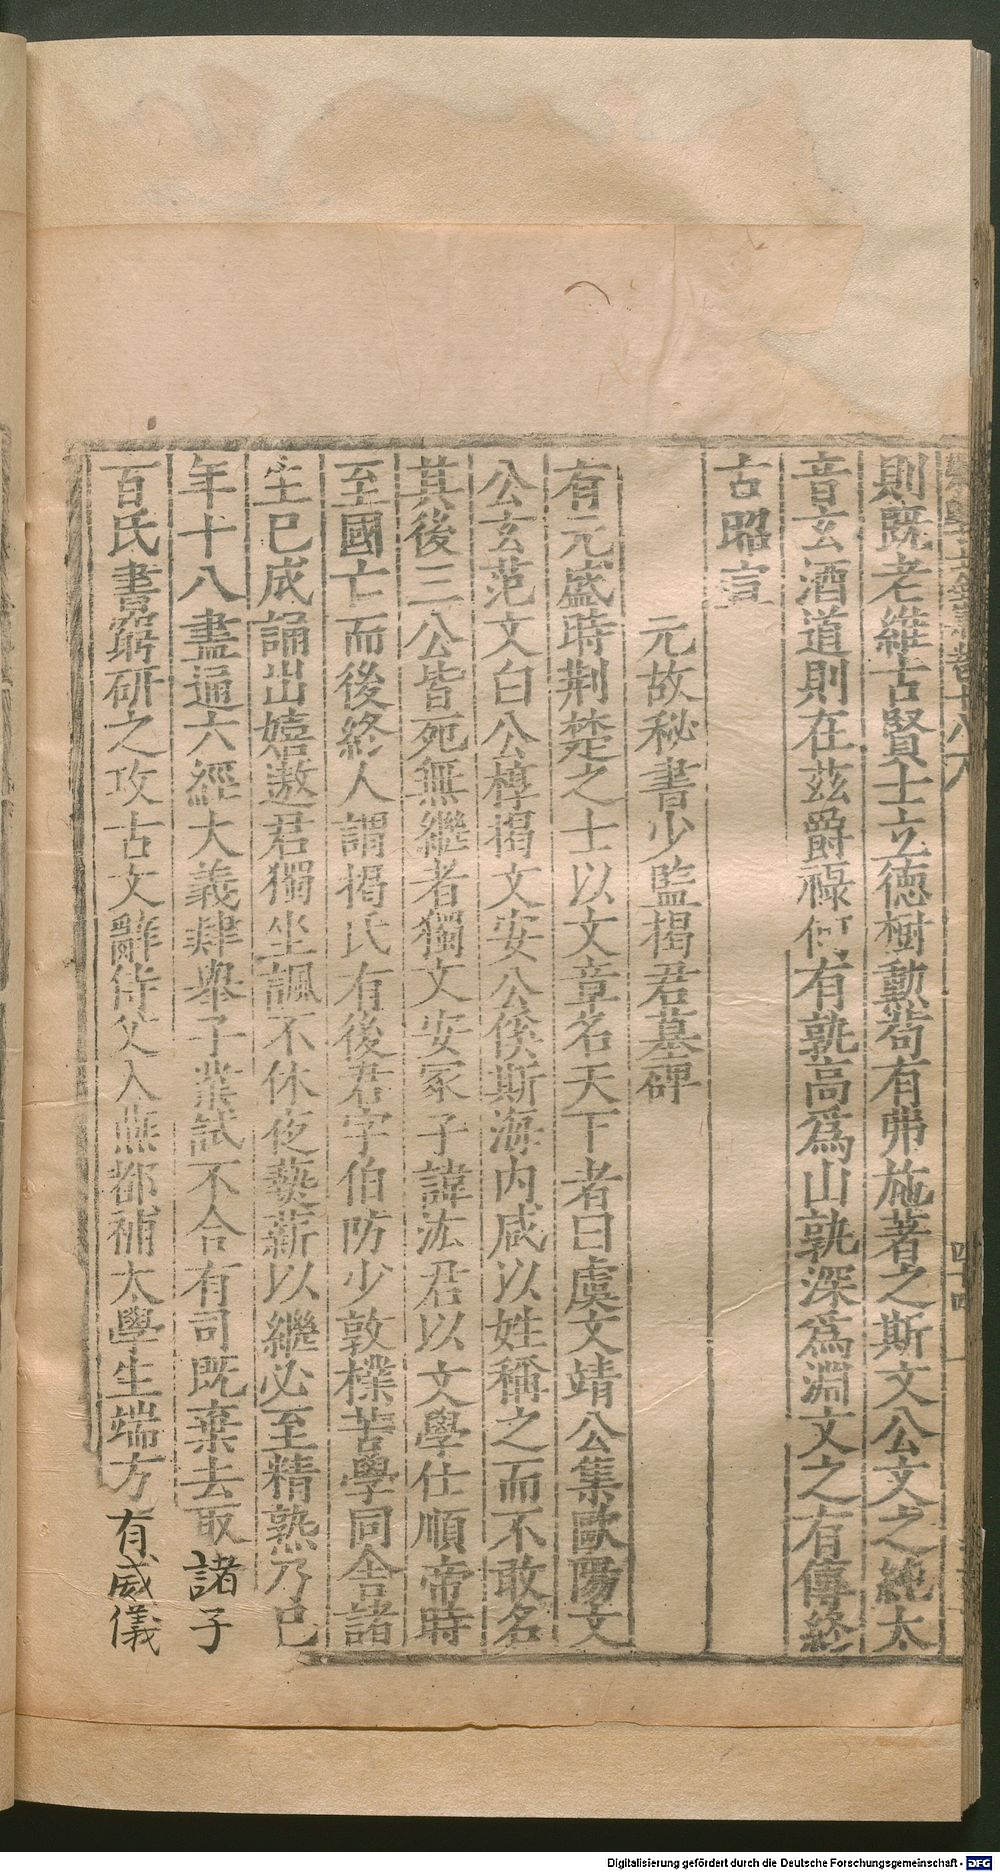 則既老維古賢士立德樹勲苟有弗施著之斯文公文之純太
音玄酒道則在茲爵祿何有孰高爲山孰深爲淵文之有傳終
古昭宣
元故秘書少監揭君墓碑
有元盛時荆楚之士以文章名天下者曰虞文靖公集歐陽文
公玄范文白公梈揭文安公傒斯海内咸以姓稱之而不敢名
其後三公皆死無繼者獨文安冢子諱汯君以文學仕順帝時
至國亡而後終人謂揭氏有後君字伯防少敦樸苦學同舍諸
生巳成誦出嬉遨君獨坐諷不休夜爇薪以繼必至精熟乃已
年十八盡通六經大義肄舉子業試不合有司既棄去取諸子
百氏書窮研之攻古文辭侍父入燕都補太學生端方有威儀
四十四
Digitalisierung gefördert durch die Deutsche Forschungsgemeinschaft - DFG